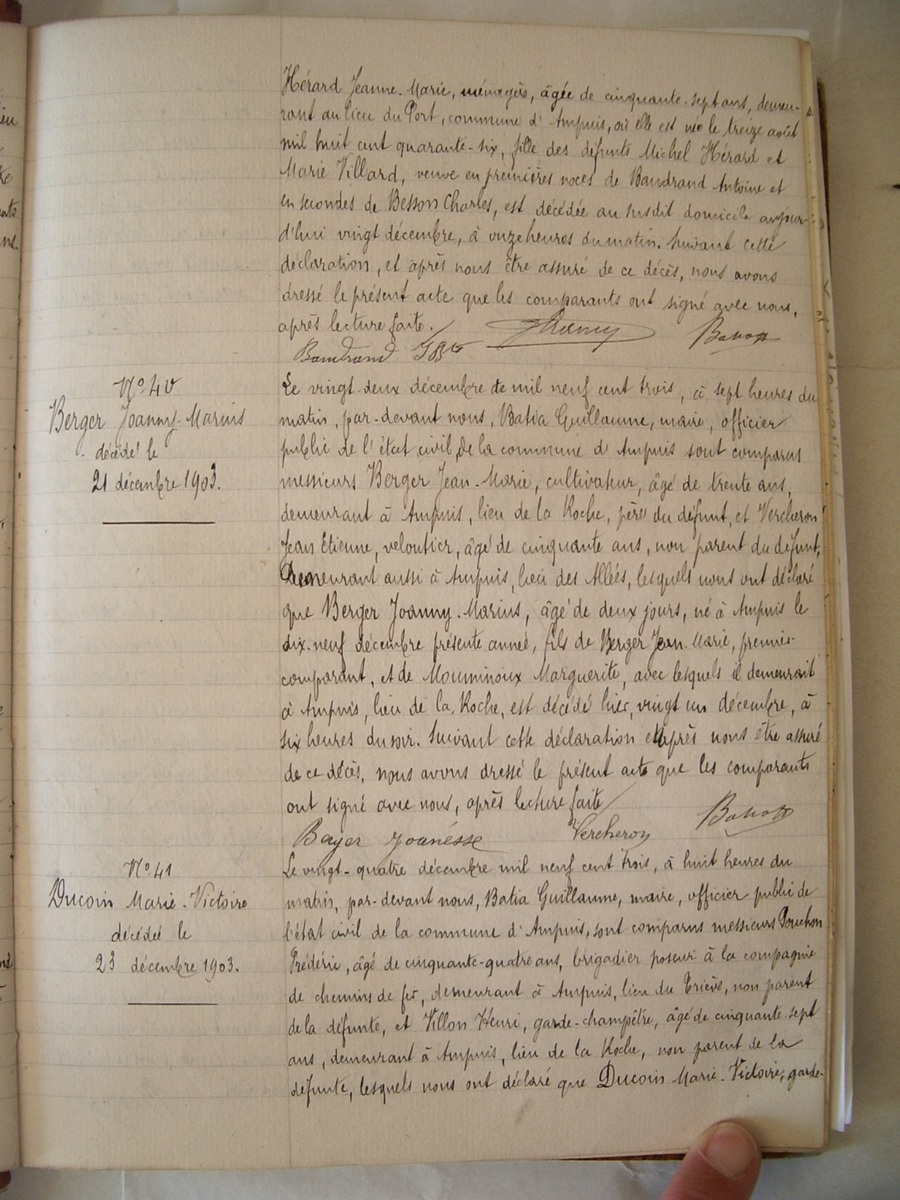 Hérard Jeanne-Marie, ménagère, âgée de cinquante-sept ans, demeu-
rant au lieu du Port, commune d'Ampuis, où elle est née le treize août
mil huit cent quarante-six, fille des défunts Michel Hérard et
Marie Villard, veuve en premières noces de Baudrand Antoine et
en secondes de Besson Charles, est décédée au susdit domicile aujour-
d'hui vingt décembre, à onze heures du matin. Suivant cette
déclaration, et après nous être assuré de ce décès, nous avons
dressé le présent acte que les comparants ont signé avec nous,
après lecture faite.
Baudrand Batia
N° 40
Berger Joanny-Marius
décédé le
21 décembre 1903.
Le vingt deux décembre de mil neuf cent trois, à sept heures du
matin, par-devant nous, Batia Guillaume, maire, officier
public de l'état civil de la commune d'Ampuis sont comparus
messieurs Berger Jean-Marie, cultivateur, âgé de trente ans,
demeurant à Ampuis, lieu de la Roche, père du défunt, et Vercheron
Jean Etienne, veloutier, âgé de cinquante ans, non parent du défunt,
Demeurant aussi à Ampuis, lieu des Allées, lesquels nous ont déclaré
que Berger Joanny-Marius, âgé de deux jours, né à Ampuis le
dix-neuf décembre présente année, fils de Berger Jean-Marie, premier
comparant, et de Mouminoux Marguerite, avec lesquels il demeurait
à Ampuis, lieu de la Roche, est décédé hier, vingt un décembre, à
six heures du soir. Suivant cette déclaration et après nous être assuré
de ce décès, nous avons dressé le présent acte que les comparants
ont signé avec nous, après lecture faite
Vercheron Batia
N° 41
Ducoin Marie-Victoire
décédée le
23 décembre 1903.
Le vingt-quatre décembre mil neuf cent trois, à huit heures du
matin, par-devant nous, Batia Guillaume, maire, officier public de
l'état civil de la commune d'Ampuis, sont comparus messieurs Pouchon
Frédéric, âgé de cinquante-quatre ans, brigadier poseur à la compagnie
de chemins de fer, demeurant à Ampuis, lieu du Triève, non parent
de la défunte, et Villon Henri, garde-champêtre, âgé de cinquante-sept
ans, demeurant à Ampuis, lieu de la Roche, non parent de la
défunte, lesquels nous ont déclaré que Ducoin Marie-Victoire, garde-